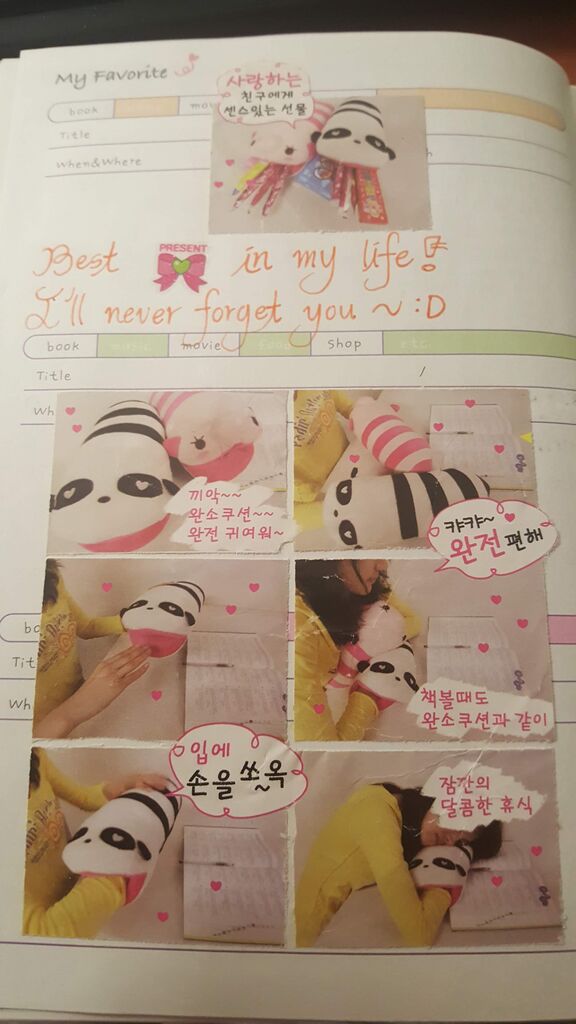 My Favorite
book mov
Title
When&Where
사랑하는
친구에게
센스있는 선물
Best PRESENT in my life!
I'll never forget you ~ :D
book music movie food shop etc.
Title
Wh
끼악~~
완소쿠션~~
완전 귀여워~
캬캬~
완전 편해
bo
Tit
Wh
책볼때도
완소쿠션과 같이
입에
손을 쏘~옥
잠깐의
달콤한 휴식